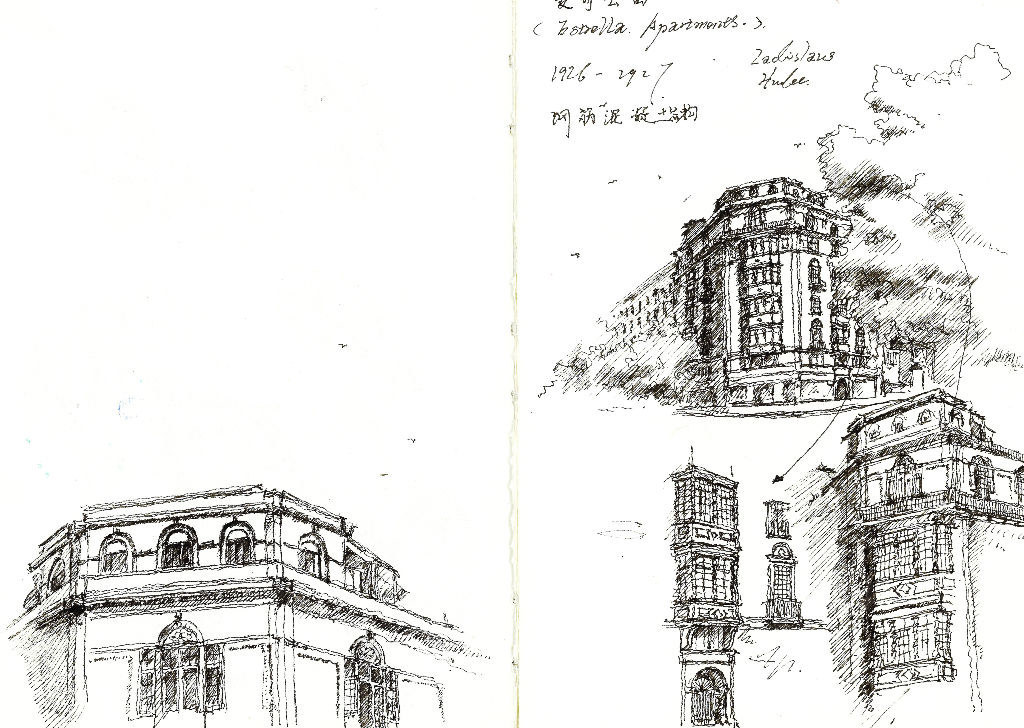 (Estrella. Apartments.).
1926-1927
Ladislaus
Hudec.
钢筋混凝土结构